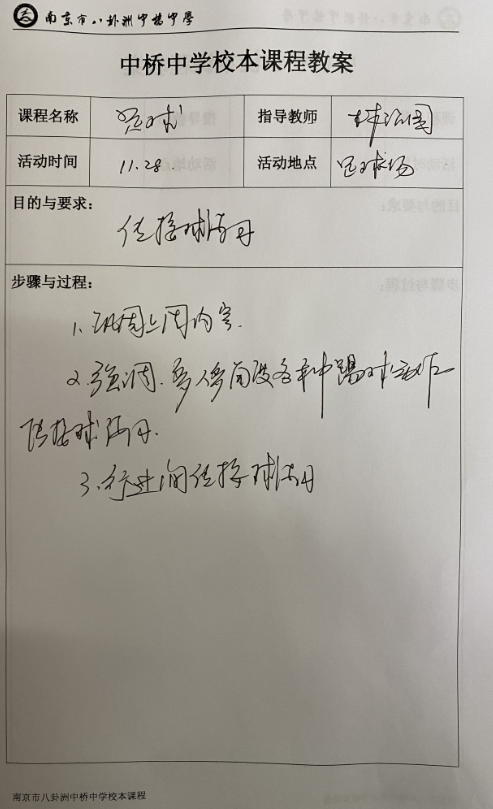 南京市八卦洲中桥中学
中桥中学校本课程教案
课程名称 足球 指导教师
活动时间 11.28 活动地点 足球场
目的与要求：
传接球练习
步骤与过程：
1. 巩固上周内容.
2. 强调.
传接球练习.
3. 行进间传接球练习
南京市八卦洲中桥中学校本课程